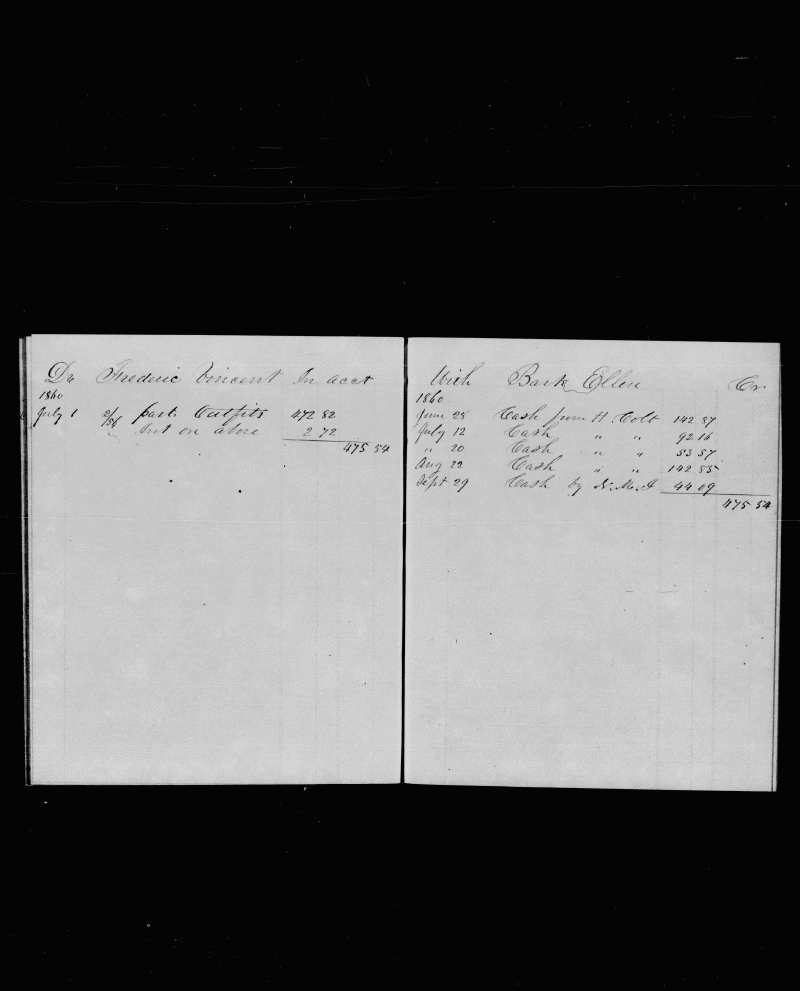 Dr Frederic Vincent In acct
1860
July 1 2/56 part. Outfits 472 82
Int on above 2 72
475 54
With Bark Ellen Cr
1860
June 28 Cash from H. Colt 142 87
July 12 Cash " " 92 16
" 20 Cash " " 53 57
Aug 22 Cash " " 142 85
Sept 29 Cash by 44 09
475 54